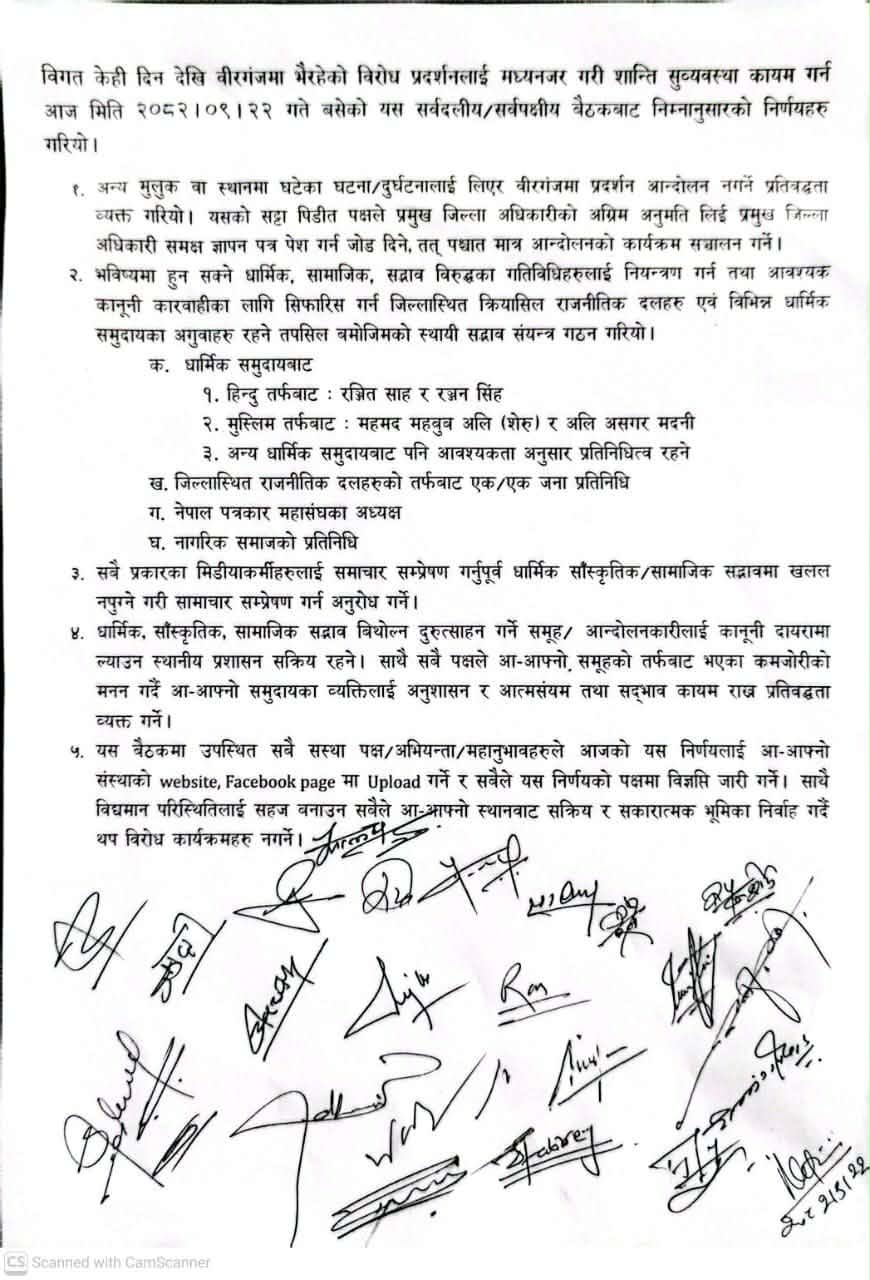 विगत केही दिन देखि वीरगंजमा भैरहेको विरोध प्रदर्शनलाई मध्यनजर गरी शान्ति सुव्यवस्था कायम गर्न
आज मिति २०८२।०९।२२ गते बसेको यस सर्वदलीय/सर्वपक्षीय बैठकबाट निम्नानुसारको निर्णयहरु
गरियो।
१. अन्य मुलुक वा स्थानमा घटेका घटना/दुर्घटनालाई लिएर वीरगंजमा प्रदर्शन आन्दोलन नगर्ने प्रतिवद्धता
व्यक्त गरियो। यसको सट्टा पिडीत पक्षले प्रमुख जिल्ला अधिकारीको अग्रिम अनुमति लिई प्रमुख जिल्ला
अधिकारी समक्ष ज्ञापन पत्र पेश गर्न जोड दिने, तत् पश्चात मात्र आन्दोलनको कार्यक्रम सञ्चालन गर्ने।
२. भविष्यमा हुन सक्ने धार्मिक, सामाजिक, सद्भाव विरुद्धका गतिविधिहरुलाई नियन्त्रण गर्न तथा आवश्यक
कानूनी कारवाहीका लागि सिफारिस गर्न जिल्लास्थित क्रियासिल राजनीतिक दलहरु एवं विभिन्न धार्मिक
समुदायका अगुवाहरु रहने तपसिल बमोजिमको स्थायी सद्भाव संयन्त्र गठन गरियो।
क. धार्मिक समुदायबाट
१. हिन्दु तर्फबाट : रञ्जित साह र रञ्जन सिंह
२. मुस्लिम तर्फबाट : महमद महबुब अलि (शेरु) र अलि असगर मदनी
३. अन्य धार्मिक समुदायबाट पनि आवश्यकता अनुसार प्रतिनिधित्व रहने
ख. जिल्लास्थित राजनीतिक दलहरुको तर्फबाट एक/एक जना प्रतिनिधि
ग. नेपाल पत्रकार महासंघका अध्यक्ष
घ. नागरिक समाजको प्रतिनिधि
३. सबै प्रकारका मिडीयाकर्मीहरुलाई समाचार सम्प्रेषण गर्नुपूर्व धार्मिक साँस्कृतिक/सामाजिक सद्भावमा खलल
नपुग्ने गरी सामाचार सम्प्रेषण गर्न अनुरोध गर्ने।
४. धार्मिक, साँस्कृतिक, सामाजिक सद्भाव विथोल्न दुरुत्साहन गर्ने समूह/ आन्दोलनकारीलाई कानूनी दायरामा
ल्याउन स्थानीय प्रशासन सक्रिय रहने। साथै सबै पक्षले आ-आफ्नो समूहको तर्फबाट भएका कमजोरीको
मनन गर्दै आ-आफ्नो समुदायका व्यक्तिलाई अनुशासन र आत्मसंयम तथा सद्‌भाव कायम राख्न प्रतिवद्धता
व्यक्त गर्ने।
५. यस बैठकमा उपस्थित सबै सस्था पक्ष/अभियन्ता/महानुभावहरुले आजको यस निर्णयलाई आ-आफ्नो
संस्थाको website, Facebook page मा Upload गर्ने र सबैले यस निर्णयको पक्षमा विज्ञप्ति जारी गर्ने। साथै
विद्यमान परिस्थितिलाई सहज वनाउन सबैले आ-आफ्नो स्थानवाट सक्रिय र सकारात्मक भूमिका निर्वाह गर्दै
थप विरोध कार्यक्रमहरु नगर्ने।
CS Scanned with CamScanner